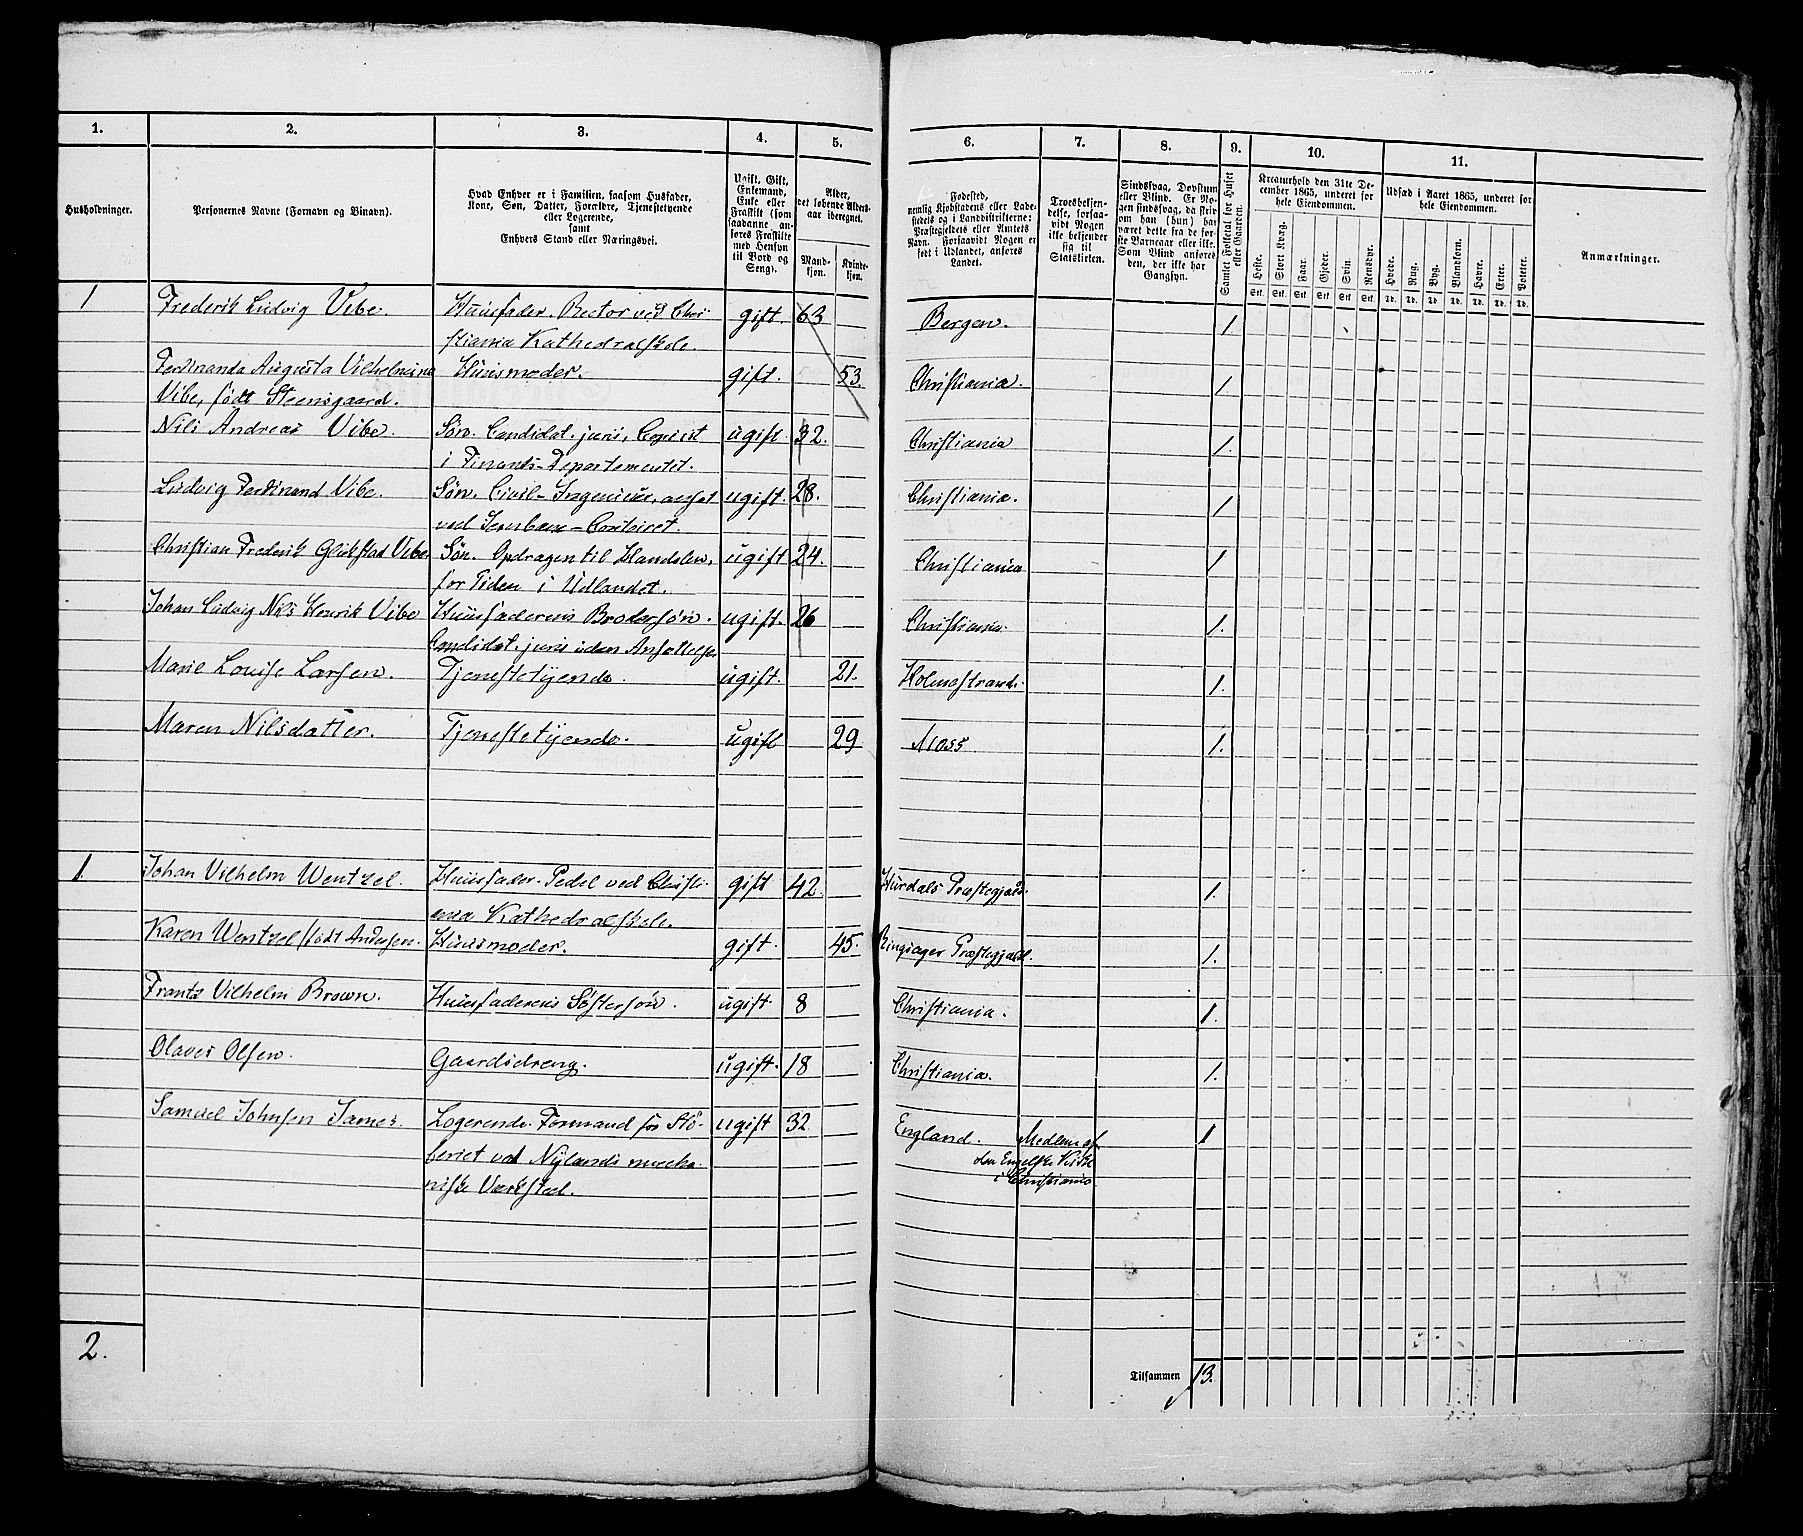 1.
2.
3.
4.
5.
6.
7.
8.
9.
10.
11.
Husholdninger.
Personernes Navne (Fornavn og Vinavn).
Hvad Enhver er i Familien, saasom Husfader,
Kone, Søn, Datter, Forældre, Tjenestetyende
eller Logerende,
samt
Enhvers Stand eller Næringsvei.
Ugift, Gift,
Enkemand,
Enke eller
Fraskilt (som
saadanne an-
føres Fraskilte
med Hensyn
til Bord og
Seng).
Alder,
det løbende Alders-
aar iberegnet.
Mand-
kjøn.
Kvinde-
kjøn.
Fødested,
nemlig Kjøbstadens eller Lade-
stedets og i Landdistrikterne:
Præstegjeldets eller Amtets
Navn. Forsaavidt Nogen er
født i Udlandet, anføres
Landet.
Troesbekjen-
delse, forsaa-
vidt Nogen
ikke bekjender
sig til
Statskirken.
Sindssvag, Døvstum
eller Blind. Er No-
gen sindssvag, da skri-
ves om han (hun) har
været dette fra de før-
ste Barneaar eller ikke.
Som Blind anføres
den, der ikke har
Gangsyn.
Samlet Folketal for Huset
eller Gaarden.
Kreaturhold den 31te De-
cember 1865, underet for
hele Eiendommen.
Heste.
Stort Kvæg.
Faar.
Gjeder.
Svin.
Rensdyr.
Stk. Stk. Stk. Stk. Stk. Stk.
Udsæd i Aaret 1865, underet for
hele Eiendommen.
Hvede.
Rug.
Byg.
Blandkorn.
Havre.
Erter.
Poteter.
Td. Td. Td. Td. Td. Td. Td.
Anmærkninger.
1 Frederik Ludvig Vibe Huusfader. Rector ved Chri- gift. 63 Bergen. 1
stiania Kathedralskole.
Ferdinanda Augusta Vilhelmine Huusmoder. gift. 53. Christiania. 1.
Vibe, født Steensgaard.
Nils Andreas Vibe. Søn. Candidat. juris, Copiist ugift. 32. Christiania 1.
i Finants-Departementet.
Ludvig Ferdinand Vibe. Søn. Civil-Ingenieur, ansat ugift. 28. Christiania. 1
ved Jernbane-Contoiret.
Christian Frederik Glükstad Vibe. Søn. Opdragen til Handelen, ugift 24. Christiania 1
for Tiden i Udlandet.
Johan Ludvig Nils Henrik Vibe Huusfaderens Brodersøn. ugift. 26 Christiania. 1.
Candidat. juris uden Ansættelse.
Marie Louise Larsen. Tjenestetyende. ugift. 21. Holmestrand. 1.
Maren Nilsdatter. Tjenestetyende. ugift 29 Moss 1.
1 Johan Vilhelm Wentzel. Huusfader. Pedel ved Christi- gift 42. Hurdals Præstegjæld. 1.
ania Kathedralskole.
Karen Wentzel født Andersen. Huusmoder. gift. 45. Ringsager Præstegjæld. 1.
Frantz Vilhelm Brown. Huusfaderens Søstersøn. ugift. 8 Christiania. 1.
Olaves Olsen. Gaardsdreng. ugift. 18 Christiania. 1.
Samuel Johnsen James. Logerende. Formand for Stø- ugift 32 England. Medlem af 1
beriet ved Nylands mecha- den Engelske Kirke
niske Værksted. i Christiania
2.
Tilsammen 13.